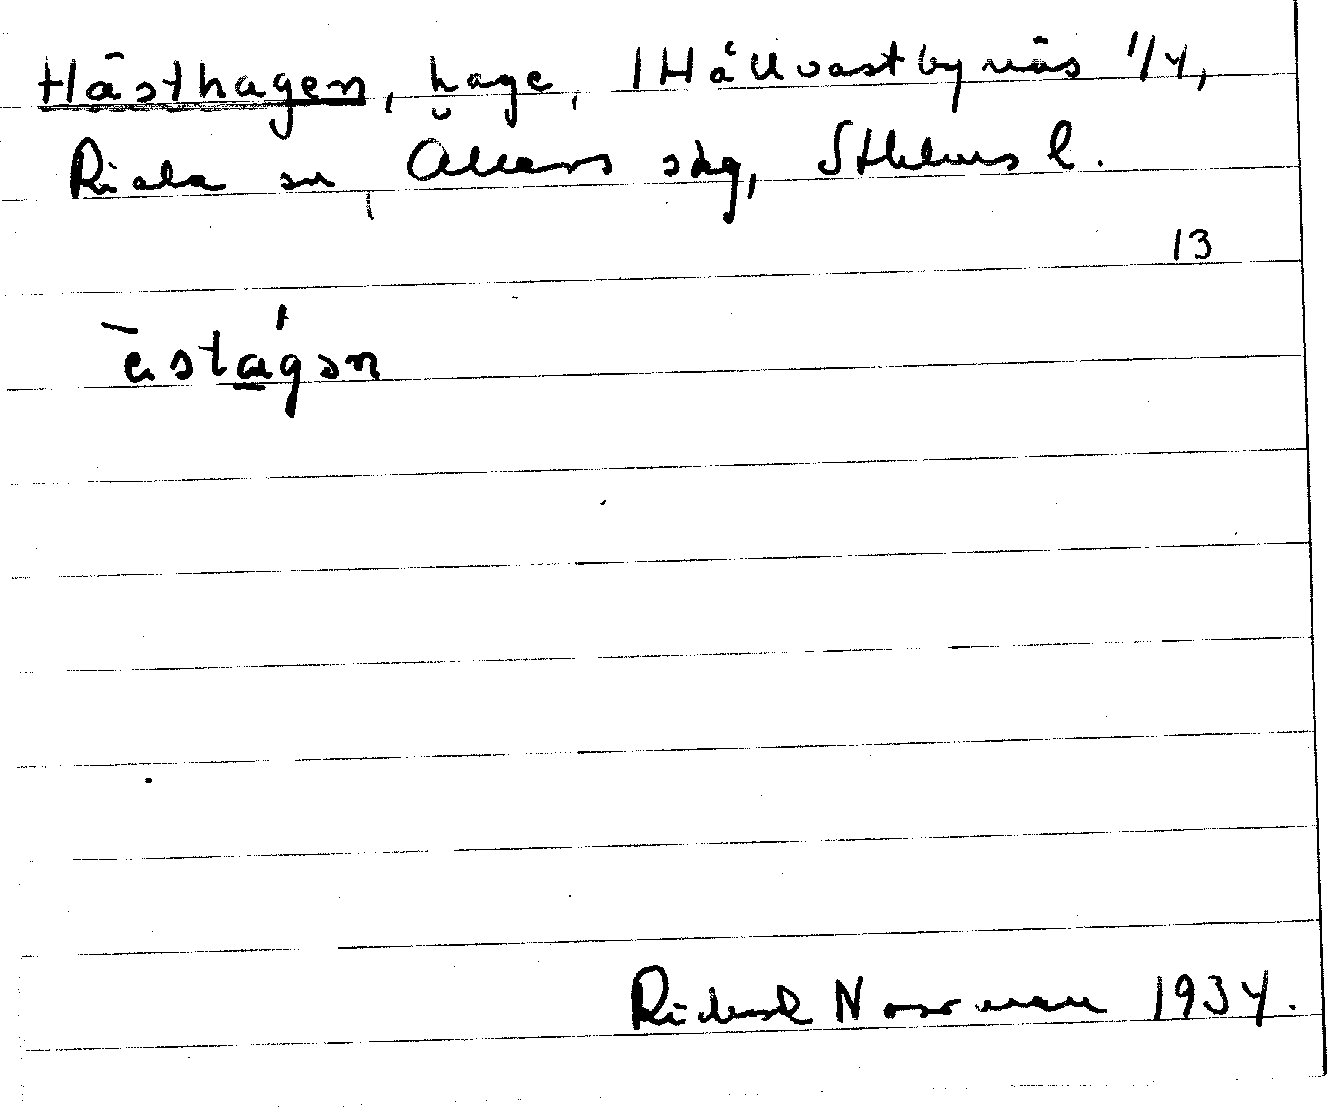 Hästhagen, hage, Hållvastbynäs 1/4,
Riala sn, Åkers slg, Sthlms l.
13
Rickard Norrman 1934.